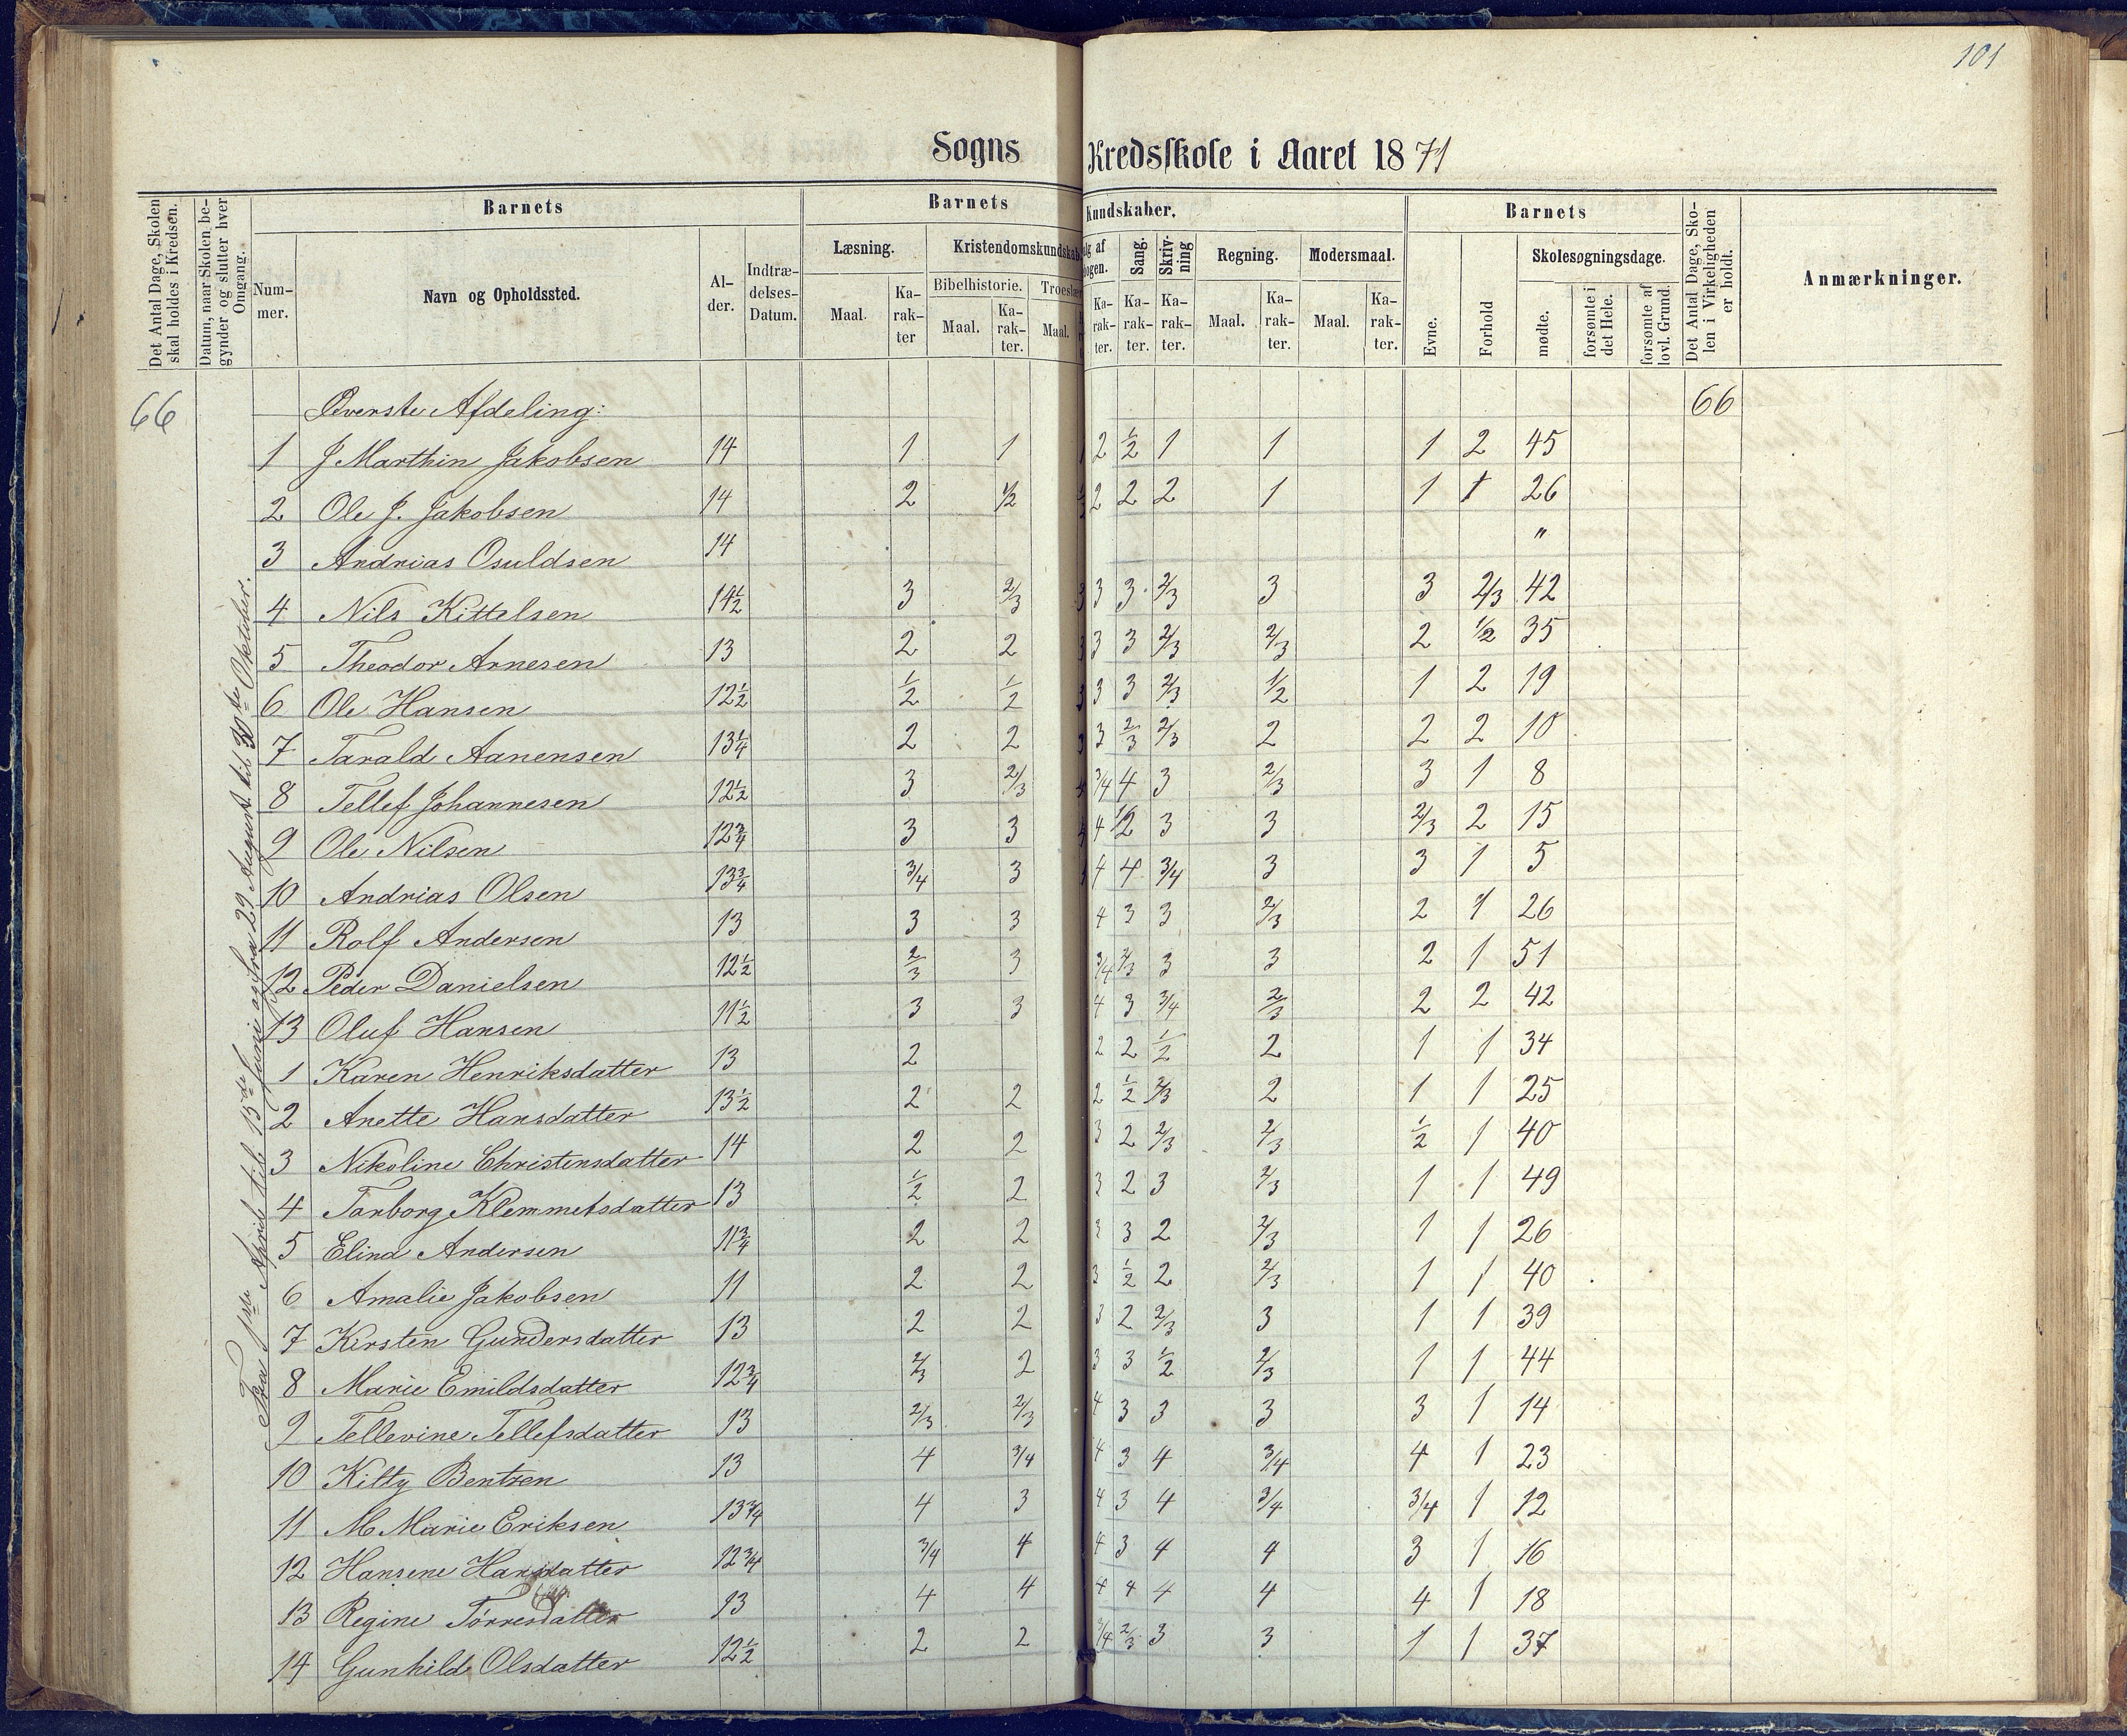 101
Sogns Kredsskole i Aaret 1871
Det Antal Dage, Skolen skal holdes i Kredsen.
Datum, naar Skolen begynder og slutter hver Omgang.
Barnets
Barnets Kundskaber.
Barnets
Det Antal Dage, Skolen i Virkeligheden er holdt.
Anmærkninger.
Nummer.
Navn og Opholdssted.
Alder.
Indtrædelses-Datum.
Læsning.
Kristendomskundskab
Sang.
Skrivning
Regning.
Modersmaal.
Evne.
Forhold
Skolesøgningsdage.
Bibelhistorie.
Maal.
Karakter
Maal.
Karakter.
Maal.
Karakter.
Karakter.
Karakter.
Maal.
Karakter.
Maal.
Karakter.
mødte.
forsømte i det Hele.
forsømte af lovl. Grund.
66 Øverste Afdeling: 66
1 J Marthin Jakobsen 14 1 1 2 1/2 1 1 1 2 45
2 Ole J. Jakobsen 14 2 1/2 2 2 2 1 1 1 26
3 Andrias Osuldsen 14 "
4 Nils Kittelsen 14 1/2 3 2/3 3 3 3 2/3 3 3 2/3 42
5 Theodor Arnesen 13 2 2 3 3 3 2/3 2/3 2 1/2 35
6 Ole Hansen 12 1/2 1/2 1/2 3 3 3 2/3 1/2 1 2 19
7 Tarald Aanensen 13 1/4 2 2 3 3 2/3 2/3 2 2 2 10
8 Tellef Johannesen 12 1/2 3 2/3 3/4 4 3 2/3 3 1 8
9 Ole Nilsen 12 3/4 3 3 4 4 1/2 3 3 2/3 2 15
10 Andrias Olsen 13 3/4 3/4 3 4 4 3/4 3 3 1 5
11 Rolf Andersen 13 3 3 4 3 3 2/3 2 1 26
12 Peder Danielsen 12 1/2 2/3 3 3/4 2/3 3 3 2 1 51
13 Oluf Hansen 11 1/2 3 3 4 3 3/4 2/3 2 2 42
1 Karen Henriksdatter 13 2 2 2 1/2 2 1 1 34
2 Anette Hansdatter 13 1/2 2 2 2 1/2 2/3 2 1 1 25
3 Nikoline Christensdatter 14 2 2 3 2 2/3 2/3 1/2 1 40
4 Tarborg Klemmetsdatter 13 1/2 2 3 2 3 2/3 1 1 49
5 Elina Andersen 11 3/4 2 2 3 3 2 2/3 1 1 26
6 Amalie Jakobsen 11 2 2 3 1/2 2 2/3 1 1 40
7 Kirsten Gundersdatter 13 2 2 3 2 2/3 3 1 1 39
8 Marie Emildsdatter 12 3/4 2/3 2 3 3 1/2 2/3 1 1 44
9 Tellevine Tellefsdatter 13 2/3 2/3 4 3 3 3 3 1 14
10 Kitty Bentzen 13 4 3/4 4 3 4 3/4 4 1 23
11 M Marie Eriksen 13 3/4 4 3 4 3 4 3/4 3/4 1 12
12 Hansene Hansdatter 12 3/4 3/4 4 4 3 4 4 3 1 16
13 Regine Tørresdatter 13 4 4 4 4 4 4 4 1 18
14 Gunhild Olsdatter 12 1/2 2 2 3/4 2/3 3 3 1 1 37
Fra 1ste April til 15de Junie og fra 29 August til 30te Oktober.